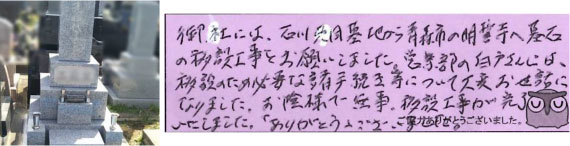 御社には、石川 の墓地から青森市の明誓寺へ墓石
の移設工事をお願いしました。営業部の白戸さんには、
移設のため必要な諸手続き等について大変お世話に
なりました。お陰様で無事、移設工事が完
いたしました。「ありがとうございました。」
ご協力ありがとうございました。